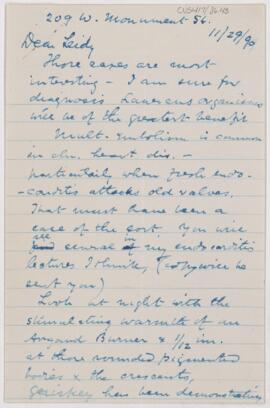 CUS417/86.48
209 W. Monument St.
11/29/90
Dear Leidy
Those cases are most
interesting – I am sure for
diagnosis Laverans organisms
will be of the greatest benefit
Mult. Embolism is common
in chr. heart dis. –
particularly when fresh endo-
-carditis attacks old valves.
That must have been a
case of the sort. You will
see several in my endocarditis
lectures I think, (copy wice be
sent you)
Look at night with the
stimulating warmth of an
Argand Burner & 1/12 im.
at those rounded pigmented
bodies & the crescents,
has been demonstrating